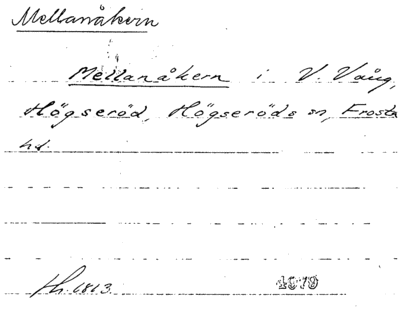 Mellanåkern
Mellanåkern i V. Vång,
Högseröd, Högseröds sn, Frosta
hd.
1813.